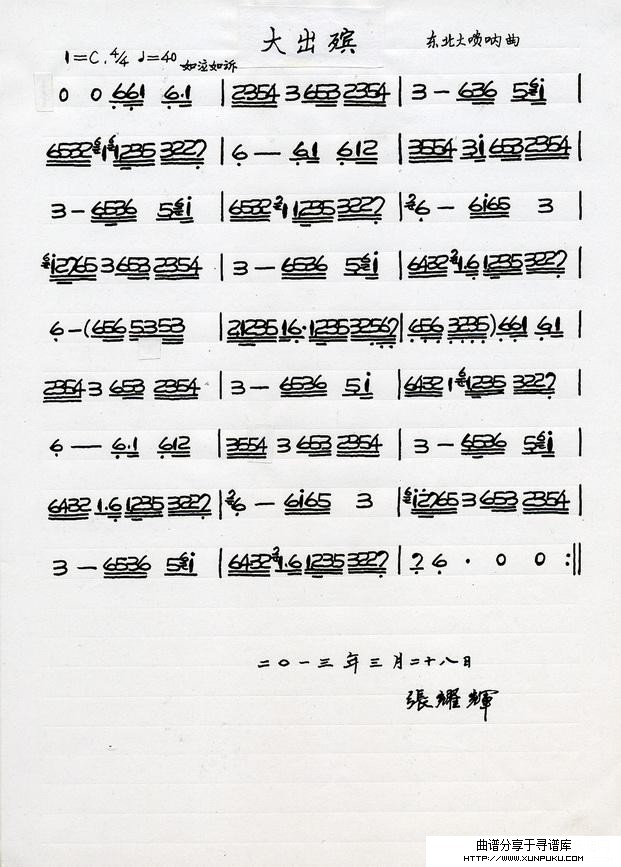 大出殡
东北大唢呐曲
1=C. 4/4 ♩=40 如泣如诉
0 0 661 6.1 | 2354 3 653 2354 | 3 — 636 5 i |
6532 1 1235 3227 | 6 — 61 612 | 3554 3i 653 2354 |
3 — 6536 5 i | 6532 1 1235 3227 | 6 — 6i65 3 |
i2765 3 653 2354 | 3 — 6536 5 i | 6432 1.6 1235 3227 |
6 — (656 5353 | 21235 16.1235 32567 | 656 3235) 661 61 |
2354 3 653 2354 | 3 — 6536 5i | 6432 1 1235 3227 |
6 — 6.1 612 | 3554 3 653 2354 | 3 — 6536 5 i |
6432 1.6 1235 3227 | 6 — 6i65 3 | i2765 3 653 2354 |
3 — 6536 5 i | 6432 1.6 1235 3227 | 7 6 . 0 0 :||
二〇一三年三月二十八日
張耀輝
曲谱分享于寻谱库
HTTP://WWW.XUNPUKU.COM